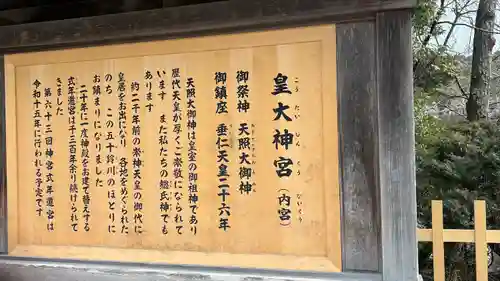 皇大神宮（内宮）
こうたいじんぐう ないくう
御祭神 天照大御神
あまてらすおおみかみ
御鎮座 垂仁天皇二十六年
天照大御神は皇室の御祖神であり
歴代天皇が厚くご崇敬になられて
います また私たちの総氏神でも
あります
約二千年前の崇神天皇の御代に
皇居をお出になり 各地をめぐられた
のち この五十鈴川のほとりに
お鎮まりになりました
二十年に一度神殿をお建て替えする
式年遷宮は千三百年余り続けられて
きました
第六十三回神宮式年遷宮は
令和十五年に行われる予定です